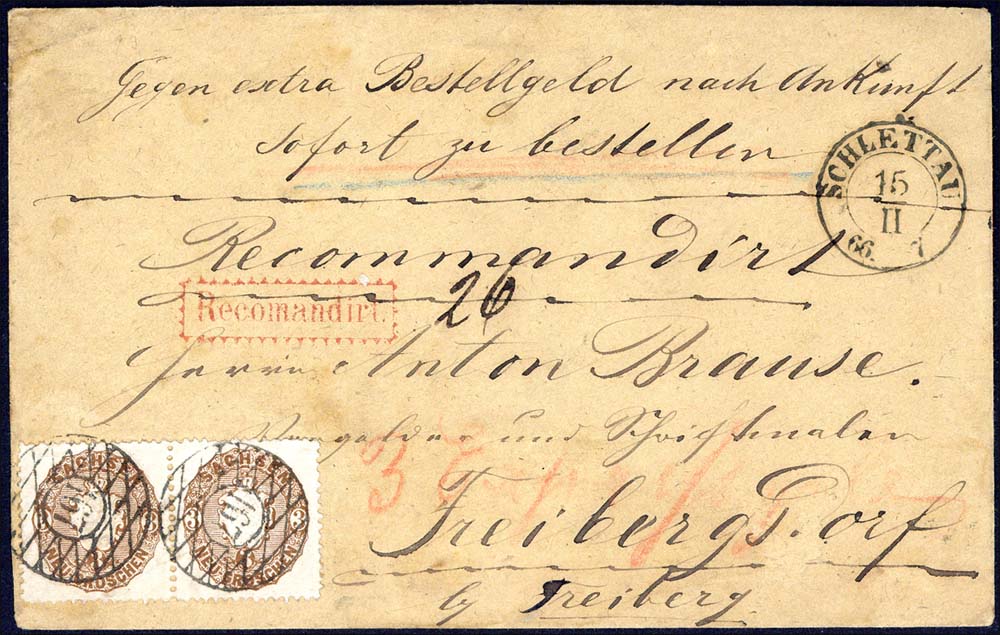 Gegen extra Bestellgeld nach Ankunft
sofort zu bestellen
SCHLETTAU
15
II
66.
7
Recommandirt
26
Recomandirt.
Herrn Anton Brause.
Vergolder und Schriftmaler
3
Freibergsdorf
by Freiberg
SACHSEN
3
NEU-GROSCHEN
SACHSEN
3 3
NEU-GROSCHEN